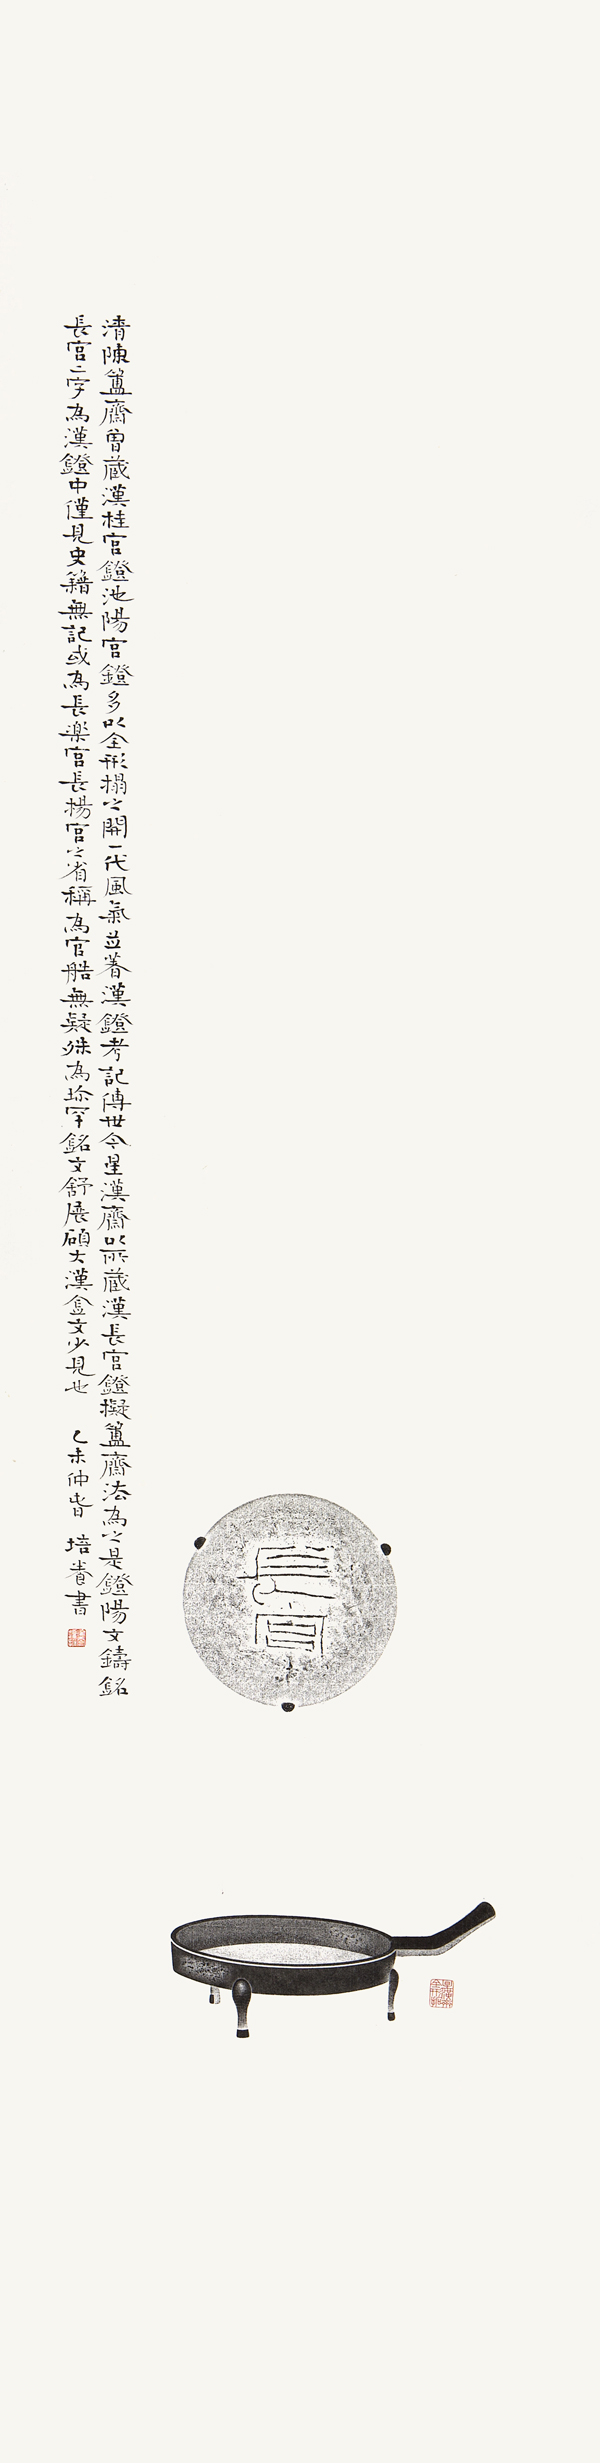 清陳簠齋曾藏漢桂宮鐙池陽宮鐙多以全形搨之開一代風氣並著漢鐙考記傳世今星漢齋以所藏漢長宮鐙擬簠齋法為之是鐙陽文鑄銘
長宮二字為漢鐙中僅見史籍無記或為長樂宮長楊宮之省稱為官皓無疑殊為珎罕銘文舒展碩大漢金文少見也 乙未仲春 培養書
長宮